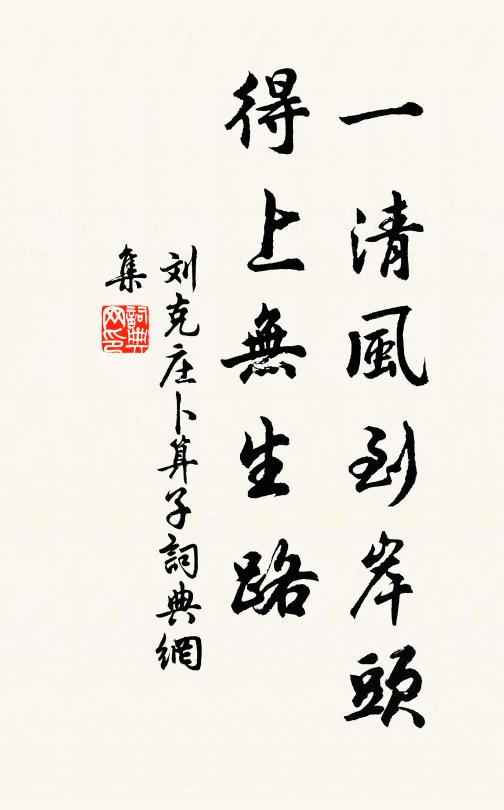 一清風到岸頭
得上無生路
刘克庄卜算子詞典網
集
詞典
网印